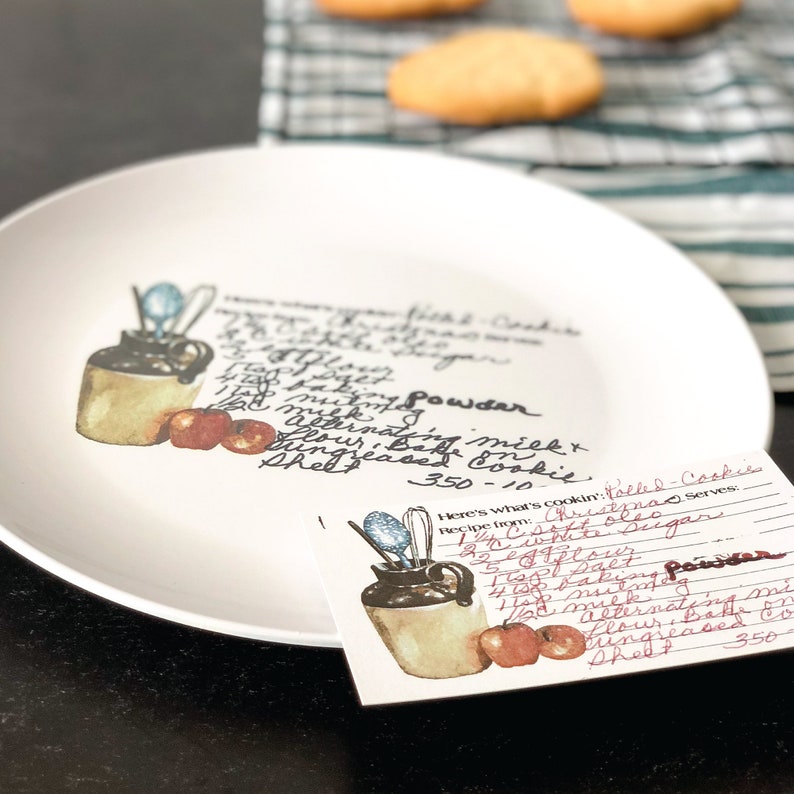 Here's what's cookin': Rolled-Cookie
Christmas
C white Sugar
5 C flour
1 tsp Salt
4 tsp baking powder
1 tsp nutmeg
1/2 c milk
alternating milk +
flour. Bake on
ungreased Cookie
Sheet 350-10
Here's what's cookin': Rolled-Cookie
Recipe from: Christmas Serves:
1 1/4 C soft oleo
2 C white Sugar
2 eggs
5 C flour
1 tsp Salt
4 tsp baking powder
1 tsp nutmeg
1/2 c milk
alternating mil
flour. Bake on
ungreased Co
Sheet 350